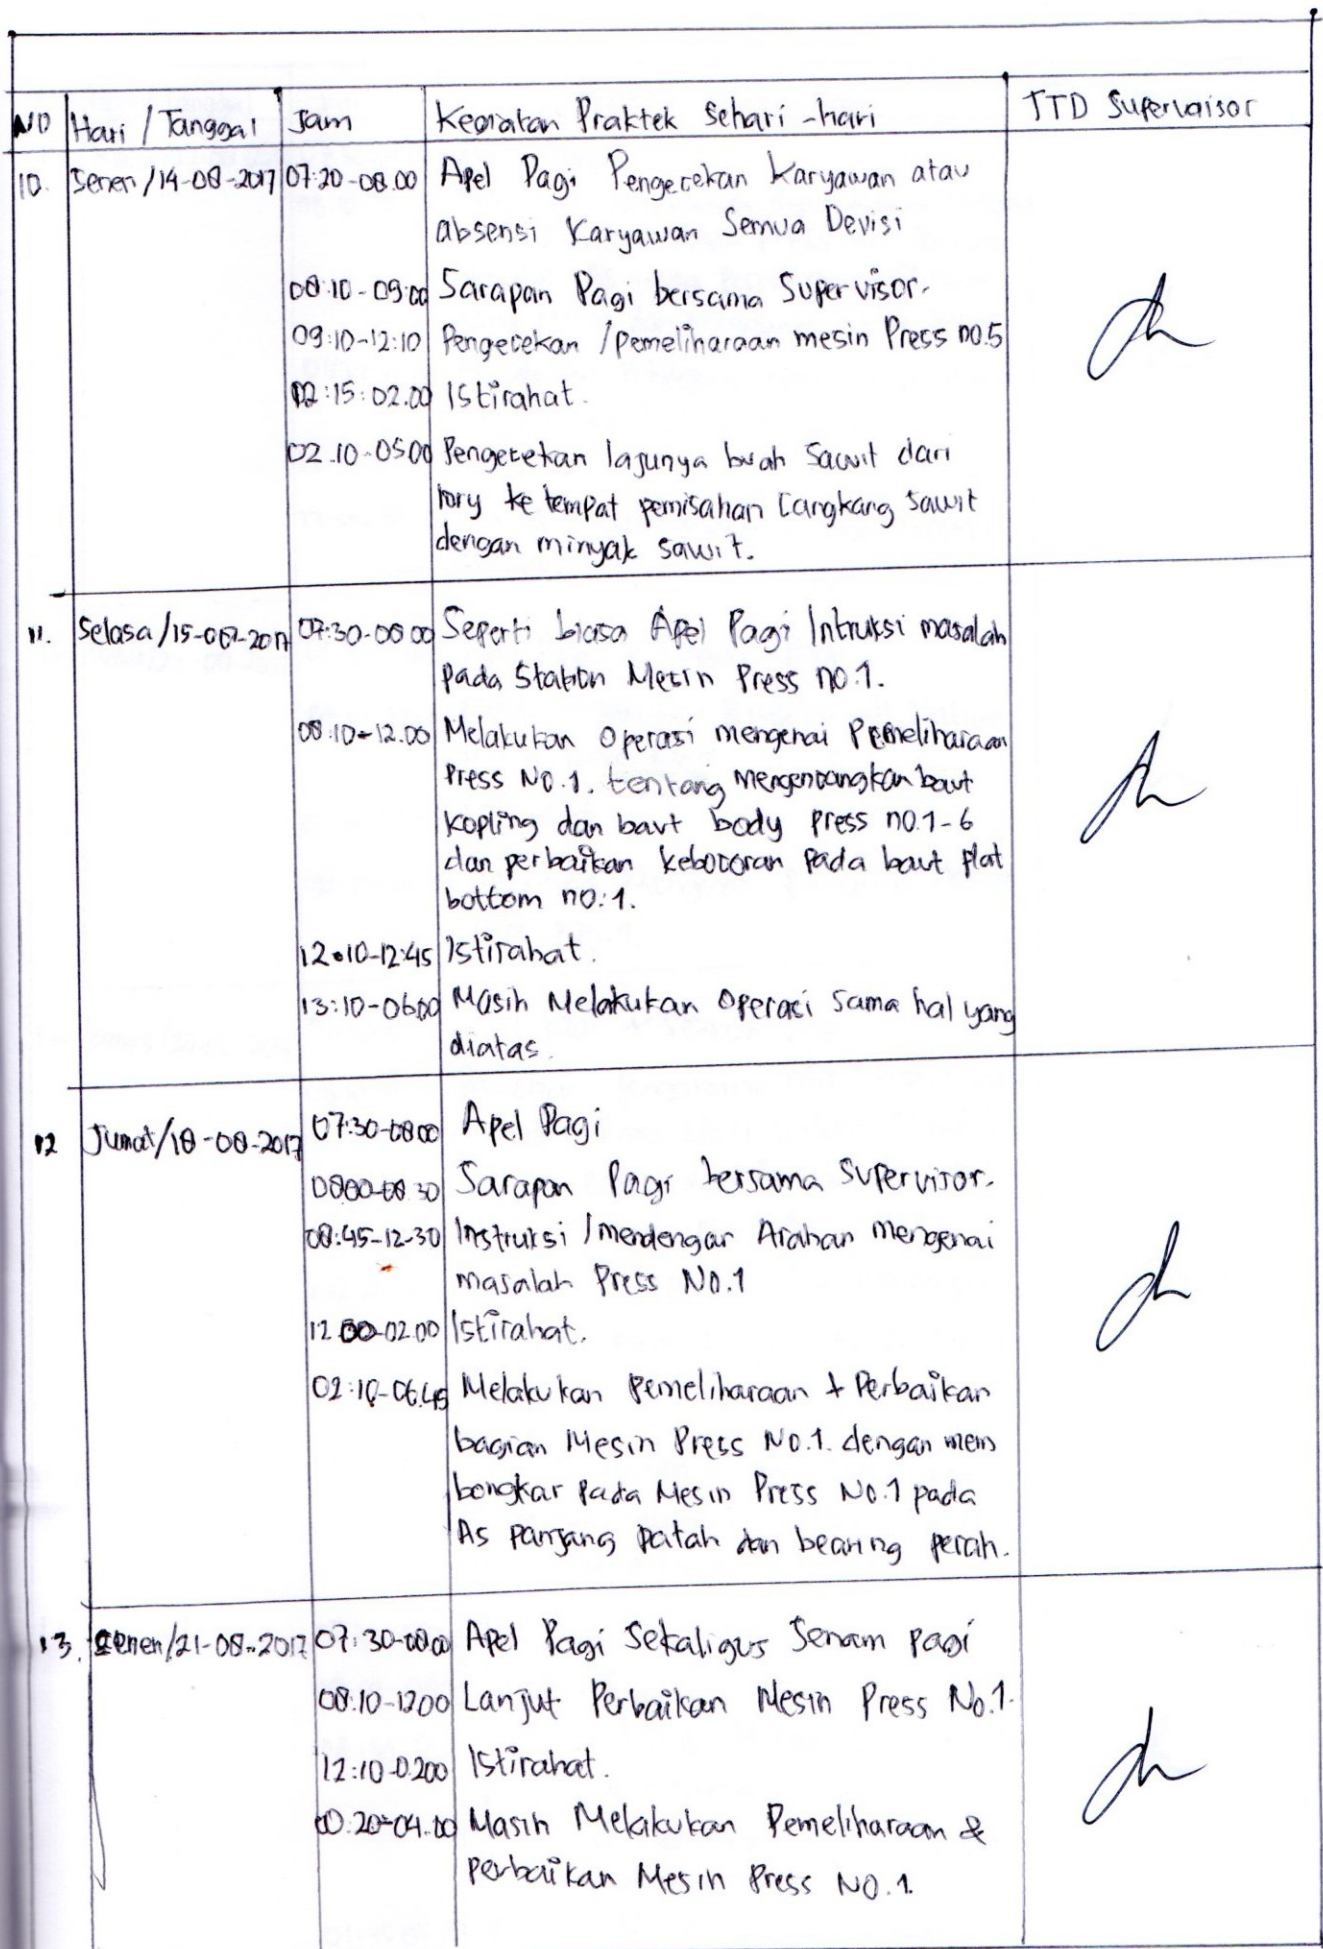 NO Hari / Tanggal Jam Kegiatan Praktek Sehari-hari TTD Supervaisor
10. Senen/14-08-2017 07:20-08.00 Apel Pagi Pengecekan Karyawan atau
absensi Karyawan Semua Devisi
08:10-09:00 Sarapan Pagi bersama Supervisor.
09:10-12:10 Pengecekan /pemeliharaan mesin Press no.5
02:15:02.00 Istirahat.
02.10-0500 Pengecekan lajunya buah Sawit dari
lory ke tempat pemisahan Cangkang Sawit
dengan minyak sawit.
11. Selasa/15-08-2017 07:30-08 00 Seperti biasa Apel Pagi Intruksi masalah
pada Station Mesin Press no.1.
08:10-12.00 Melakukan Operasi mengenai Pemeliharaan
Press No.1. tentang mengencangkan baut
kopling dan baut body press no.1-6
dan perbaikan kebocoran pada baut plat
bottom no:1.
12.10-12:45 Istirahat.
13:10-0600 Masih Melakukan Operasi Sama hal yang
diatas.
12 Jumat/18-08-2017 07:30-0800 Apel Pagi
0800-08 30 Sarapan Pagi bersama Supervisor.
08:45-12-30 Instruksi /mendengar Arahan mengenai
masalah Press No.1
12.00-02.00 Istirahat.
02:10-06.45 Melakukan pemeliharaan + Perbaikan
bagian Mesin Press No.1. dengan mem
bongkar pada Mesin Press No.1 pada
As panjang patah dan bearing pecah.
13. Senen/21-08-2017 07:30-0800 Apel Pagi Sekaligus Senam pagi
08:10-1200 Lanjut Perbaikan Mesin Press No.1.
12:10-0.200 Istirahat.
00:20-04.00 Masih Melakukan Pemeliharaan &
perbaikan Mesin Press No.1.